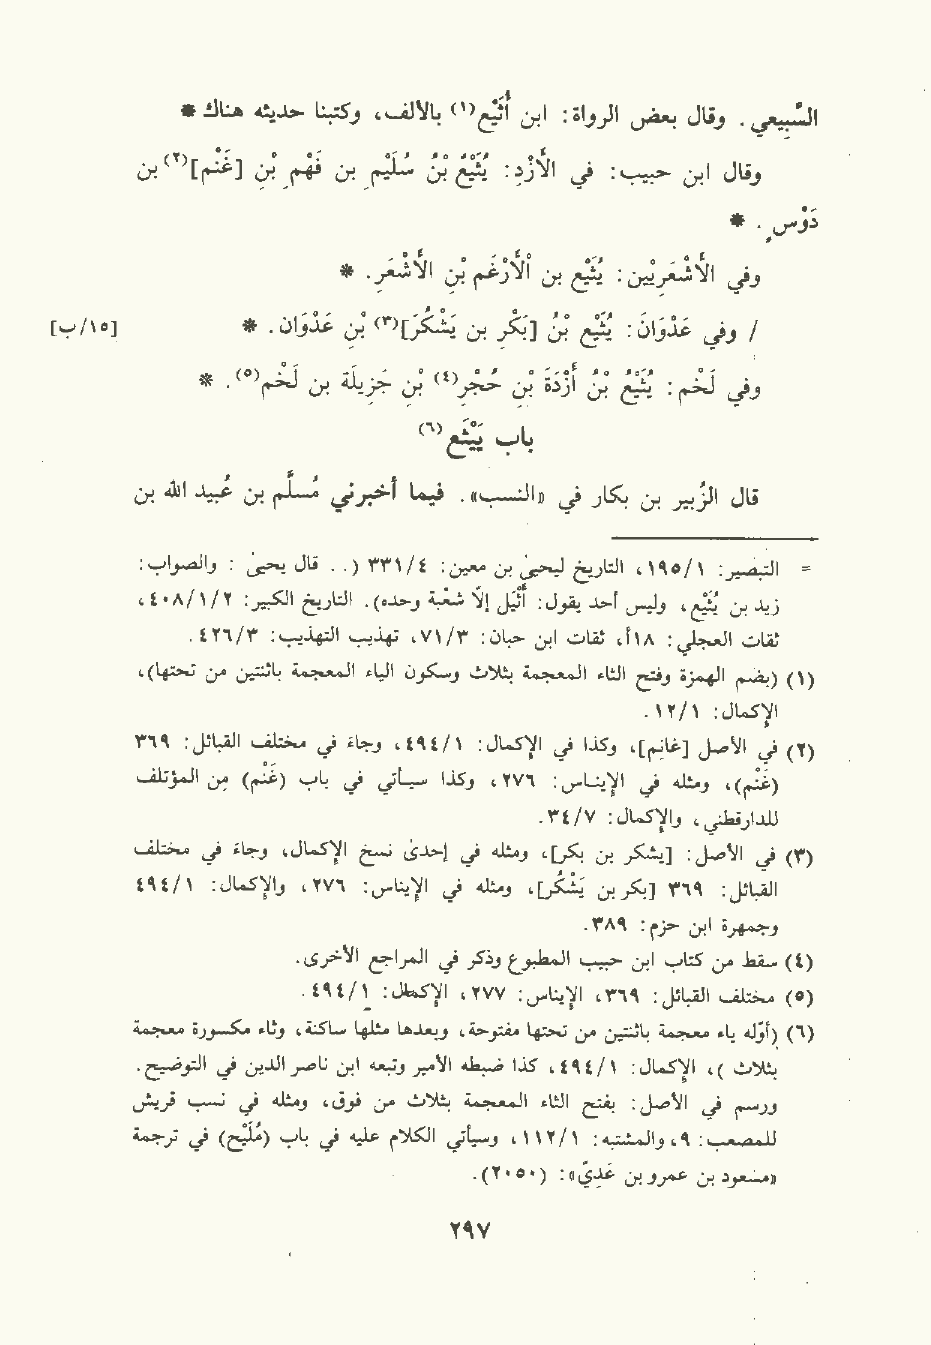 السَّبِيعي. وقال بعض الرواة: ابن أُثَيْع(١) بالألف، وكتبنا حديثه هناك *
وقال ابن حبيب: في الأَزْدِ: يُثَيْعُ بْنُ سُلَيْمِ بن فَهْمِ بْنِ [غَنْم](٢) بن
دَوْسٍ. *
وفي الأَشْعَرِيِّين: يُثَيْع بن الأَرْغَمِ بْنِ الأَشْعَرِ. *
/ وفي عَدْوَانَ: يُثَيْع بْنُ [بَكْرِ بن يَشْكُرَ](٣) بْنِ عَدْوَان. * [١٥/ب]
وفي لَخْمٍ: يُثَيْعُ بْنُ أَزْدَةَ بْنِ حُجْرِ(٤) بْنِ جَزِيلَةَ بن لَخْمٍ(٥). *
باب يَيْثَع(٦)
قال الزُبير بن بكار في «النسب». فيما أخبرني مُسلَّم بن عُبيد الله بن
= التبصير: ١٩٥/١، التاريخ ليحيىٰ بن معين: ٣٣١/٤ (.. قال يحيىٰ : والصواب:
زيد بن يُثَيْع، وليس أحد يقول: أُثَيْل إلاّ شعْبة وحده). التاريخ الكبير: ٤٠٨/١/٢،
ثقات العجلي: ١٨أ، ثقات ابن حبان: ٧١/٣، تهذيب التهذيب: ٤٢٦/٣.
(١) (بضم الهمزة وفتح الثاء المعجمة بثلاث وسكون الياء المعجمة باثنتين من تحتها)،
الإكمال: ١٢/١.
(٢) في الأصل [غانِم]، وكذا في الإكمال: ٤٩٤/١، وجاءَ في مختلف القبائل: ٣٦٩
(غَنْم)، ومثله في الإِيناس: ٢٧٦، وكذا سيأتي في باب (غَنْم) مِن المؤتلف
للدارقطني، والإكمال: ٣٤/٧.
(٣) في الأصل: [يشكر بن بكر]، ومثله في إحدىٰ نسخ الإكمال، وجاءَ في مختلف
القبائل: ٣٦٩ [بكر بن يَشْكُر]، ومثله في الإيناس: ٢٧٦، والإكمال: ٤٩٤/١
وجمهرة ابن حزم: ٣٨٩.
(٤) سقط من كتاب ابن حبيب المطبوع وذكر في المراجع الأخرى.
(٥) مختلف القبائل: ٣٦٩، الإيناس: ٢٧٧، الإكمال: ٤٩٤/١.
(٦) (أوّله ياء معجمة باثنتين من تحتها مفتوحة، وبعدها مثلها ساكنة، وثاء مكسورة معجمة
بثلاث )، الإكمال: ٤٩٤/١، كذا ضبطه الأمير وتبعه ابن ناصر الدين في التوضيح.
ورسم في الأصل: بفتح الثاء المعجمة بثلاث من فوق، ومثله في نسب قريش
للمصعب: ٩، والمشتبه: ١١٢/١، وسيأتي الكلام عليه في باب (مُلَيْح) في ترجمة
«مسعود بن عمرو بن عَدِيّ»: (٢٠٥٠).
٢٩٧